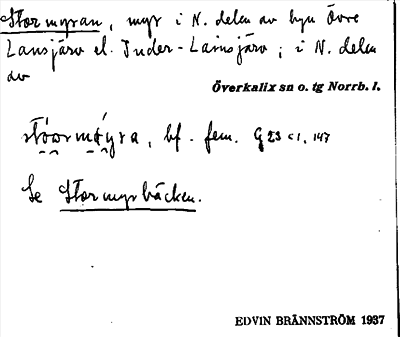 Stormyran, myr i N. delen av byn Övre
Lansjärv el. Inder-Lansjärv; i N. delen
av
Överkalix sn o. tg Norrb. l.
bf. fem. G 23 c 1, 147
Se Stormyrbäcken.
EDVIN BRÄNNSTRÖM 1937